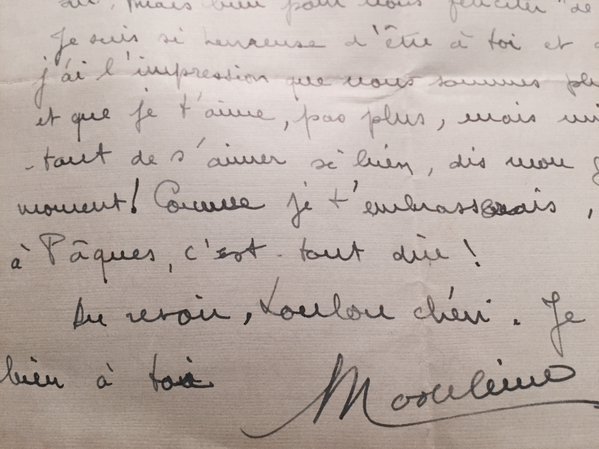 dit, mais bien pour nous féliciter "de
Je suis si heureuse d'être à toi et
j'ai l'impression que nous sommes plu
et que je t'aime, pas plus, mais mi
-tant de s'aimer si bien, dis mon g
moment! Comme je t'embrasserais,
à Pâques, c'est tout dire!
Au revoir, Loulou chéri. Je
bien à toi
Madeleine